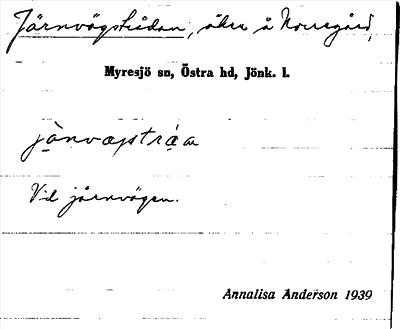 Järnvägstrådan, åker å Norregård,
Myresjö sn, Östra hd, Jönk. l.
jànvæstráa
Vid järnvägen.
Annalisa Anderson 1939